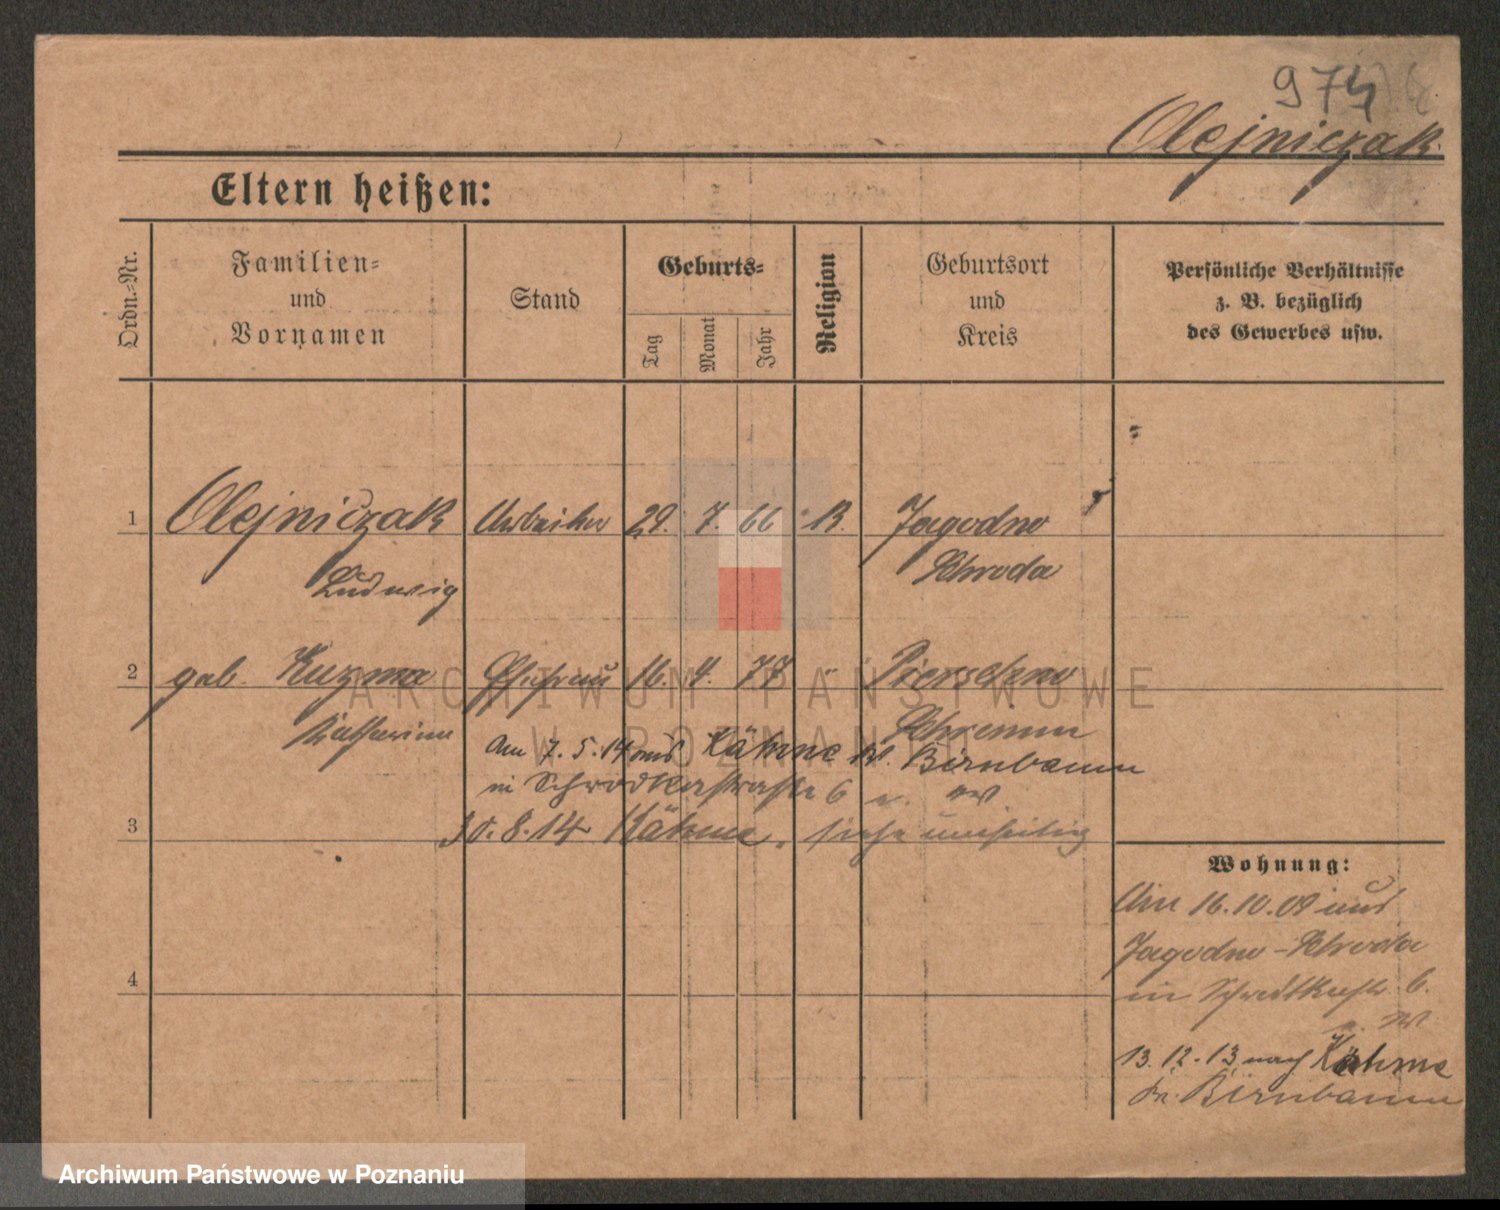 974
Olejniczak
Eltern heißen:
Ordn.-Nr.
Familien-
und
Vornamen
Stand
Geburts-
Tag
Monat
Jahr
Religion
Geburtsort
und
Kreis
Persönliche Verhältnisse
z. B. bezüglich
des Gewerbes usw.
1 Olejniczak Arbeiter 29. 7. 66 Jagodno
Ludwig Schroda
2 geb. Kuzma Ehefrau 16. 4. 77 "
Katharina Schrimm
Am 7.5.14 aus Kähme Kr. Birnbaum
in Schrodkastraße 6
3 30.8.14 Kähme, siehe umseitig
Wohnung:
Am 16.10.09 aus
Jagodno-Schroda
in Schrodkastr. 6.
4
13.12.13 nach Kähme
Kr. Birnbaum
ARCHIWUM PAŃSTWOWE
W POZNANIU
Archiwum Państwowe w Poznaniu